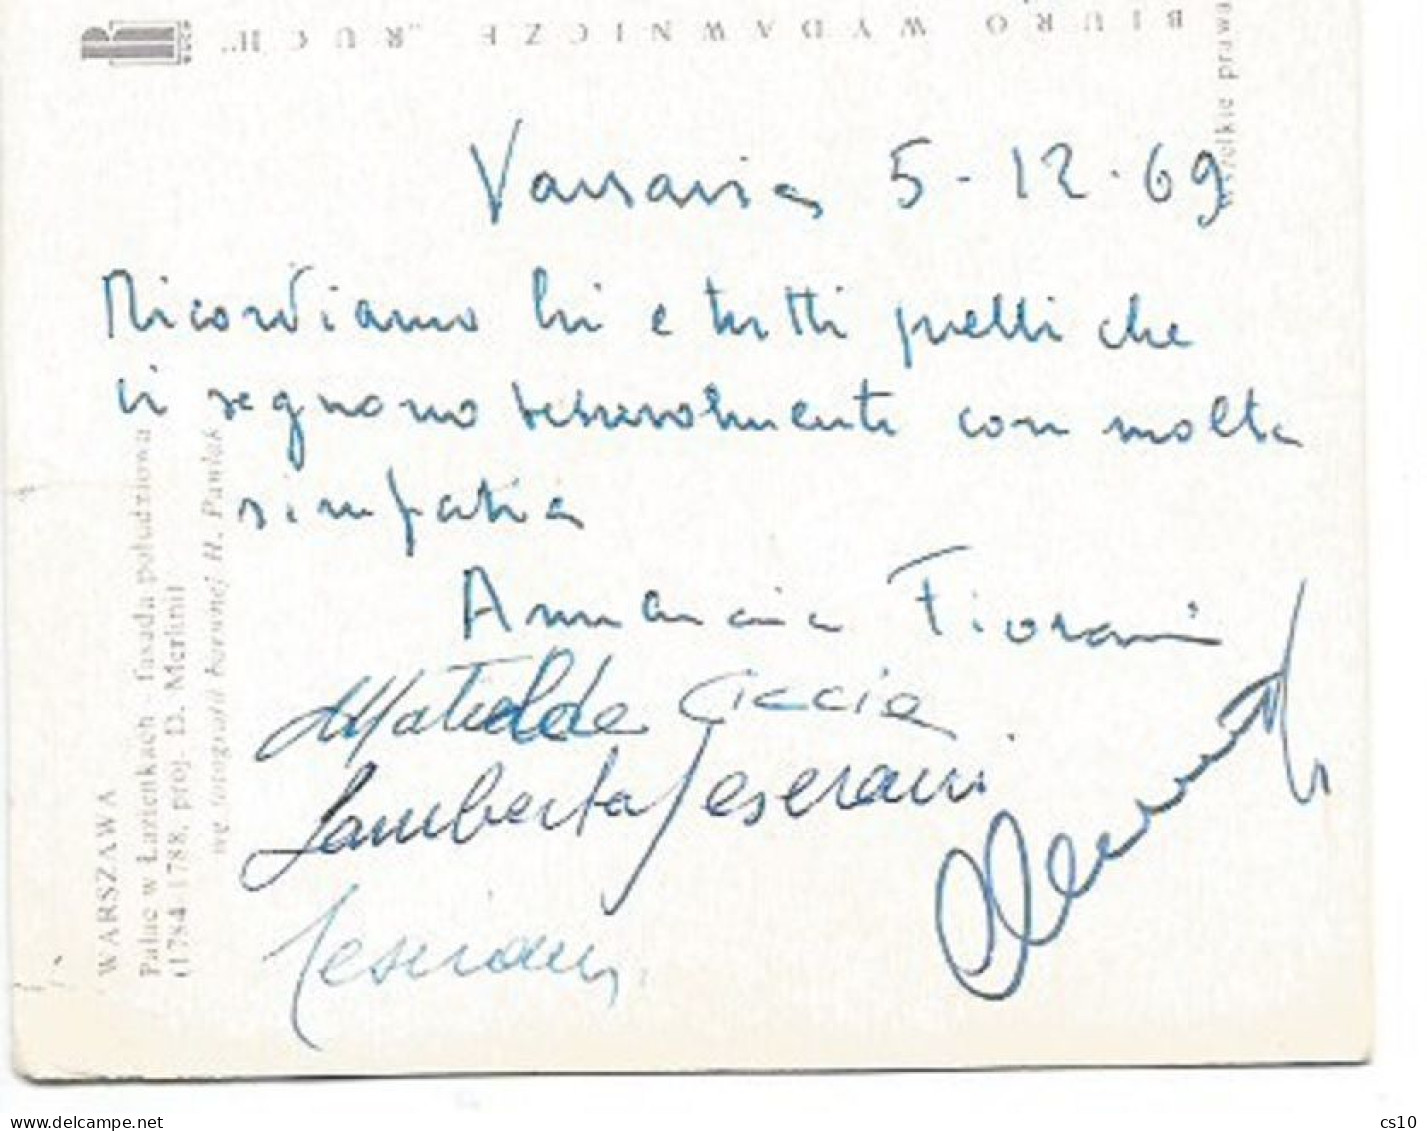 BIURO WYDAWNICZE „RUCH"
RUCH
wszelkie prawa
Varsavia 5-12-69
Ricordiamo lei e tutti quelli che
ci seguono con molta
simpatia
Annunzia Fiorani
Matilde Ciccia
Lamberta Jeserani
WARSZAWA
Pałac w Łazienkach - fasada południowa
(1784-1788, proj. D. Merlini)
wg fotografii barwnej H. Pawlak
www.delcampe.net
cs10